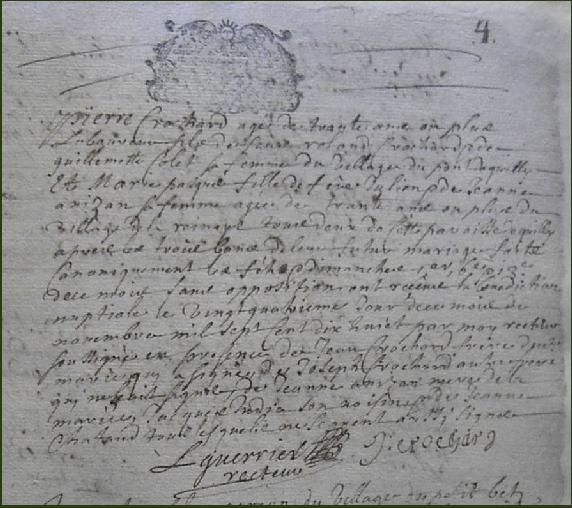 4.
pierre Crochard agé de trante ans ou plus
laboureur fils de roland Crochard & de
guillemette Colet sa femme du village du pont
Et Marie pasqué fille de feu Jullien & de Jeanne
anizan sa femme agee de trante ans ou plus du
village de la tous deux de cette paroisse
apres les trois bans de leur futur mariage faits
Canoniquement les festes & dimanches
de ce mois sans opposition ont receu la benediction
nuptiale le vingt quatrieme jour de ce mois de
novembre mil sept cent dix huict par moy recteur
soussigné en presence de Jean Crochard frere du
marié qui a signé & de Joseph Crochard autre frere
qui ne scait signer de Jeanne anizan mere de la
mariée Jacques son voisin & de Jeanne
Chataud tous lesquels ne scavent signer
Lguerrier
recteur
J: crochard
du village du petit betz